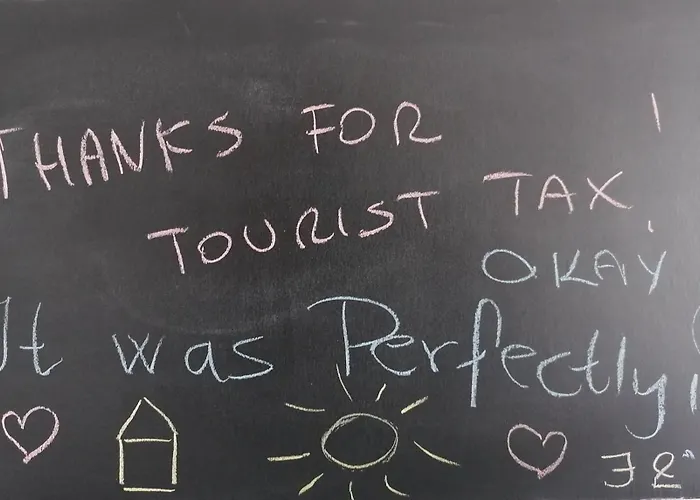 THANKS FOR
TOURIST TAX
OKAY
It was Perfectly!